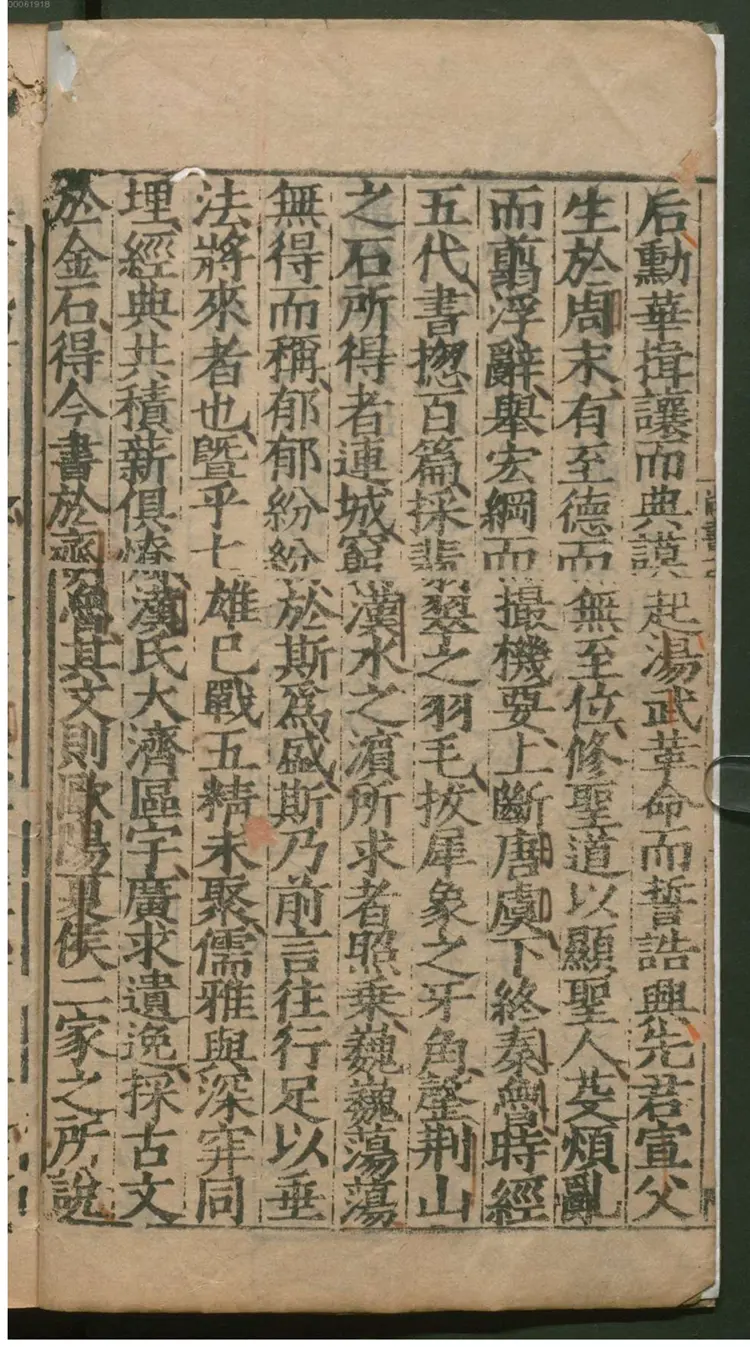 后勳華揖讓而典謨起湯武革命而誓誥興先君宣父
生於周末有至德而無至位修聖道以顯聖人芟煩亂
而翦浮辭舉宏綱而撮機要上斷唐虞下終秦魯時經
五代書揔百篇採翡翠之羽毛拔犀象之牙角罄荆山
之石所得者連城窮漢水之濵所求者照乗巍巍蕩蕩
無得而稱郁郁紛紛於斯爲盛斯乃前言徃行足以垂
法將來者也曁乎七雄已戰五精未聚儒雅與深穽同
埋經典共積薪俱燎漢氏大濟區宇廣求遺逸採古文
於金石得今書於齊魯其文則歐陽夏侯二家之所說
00061918